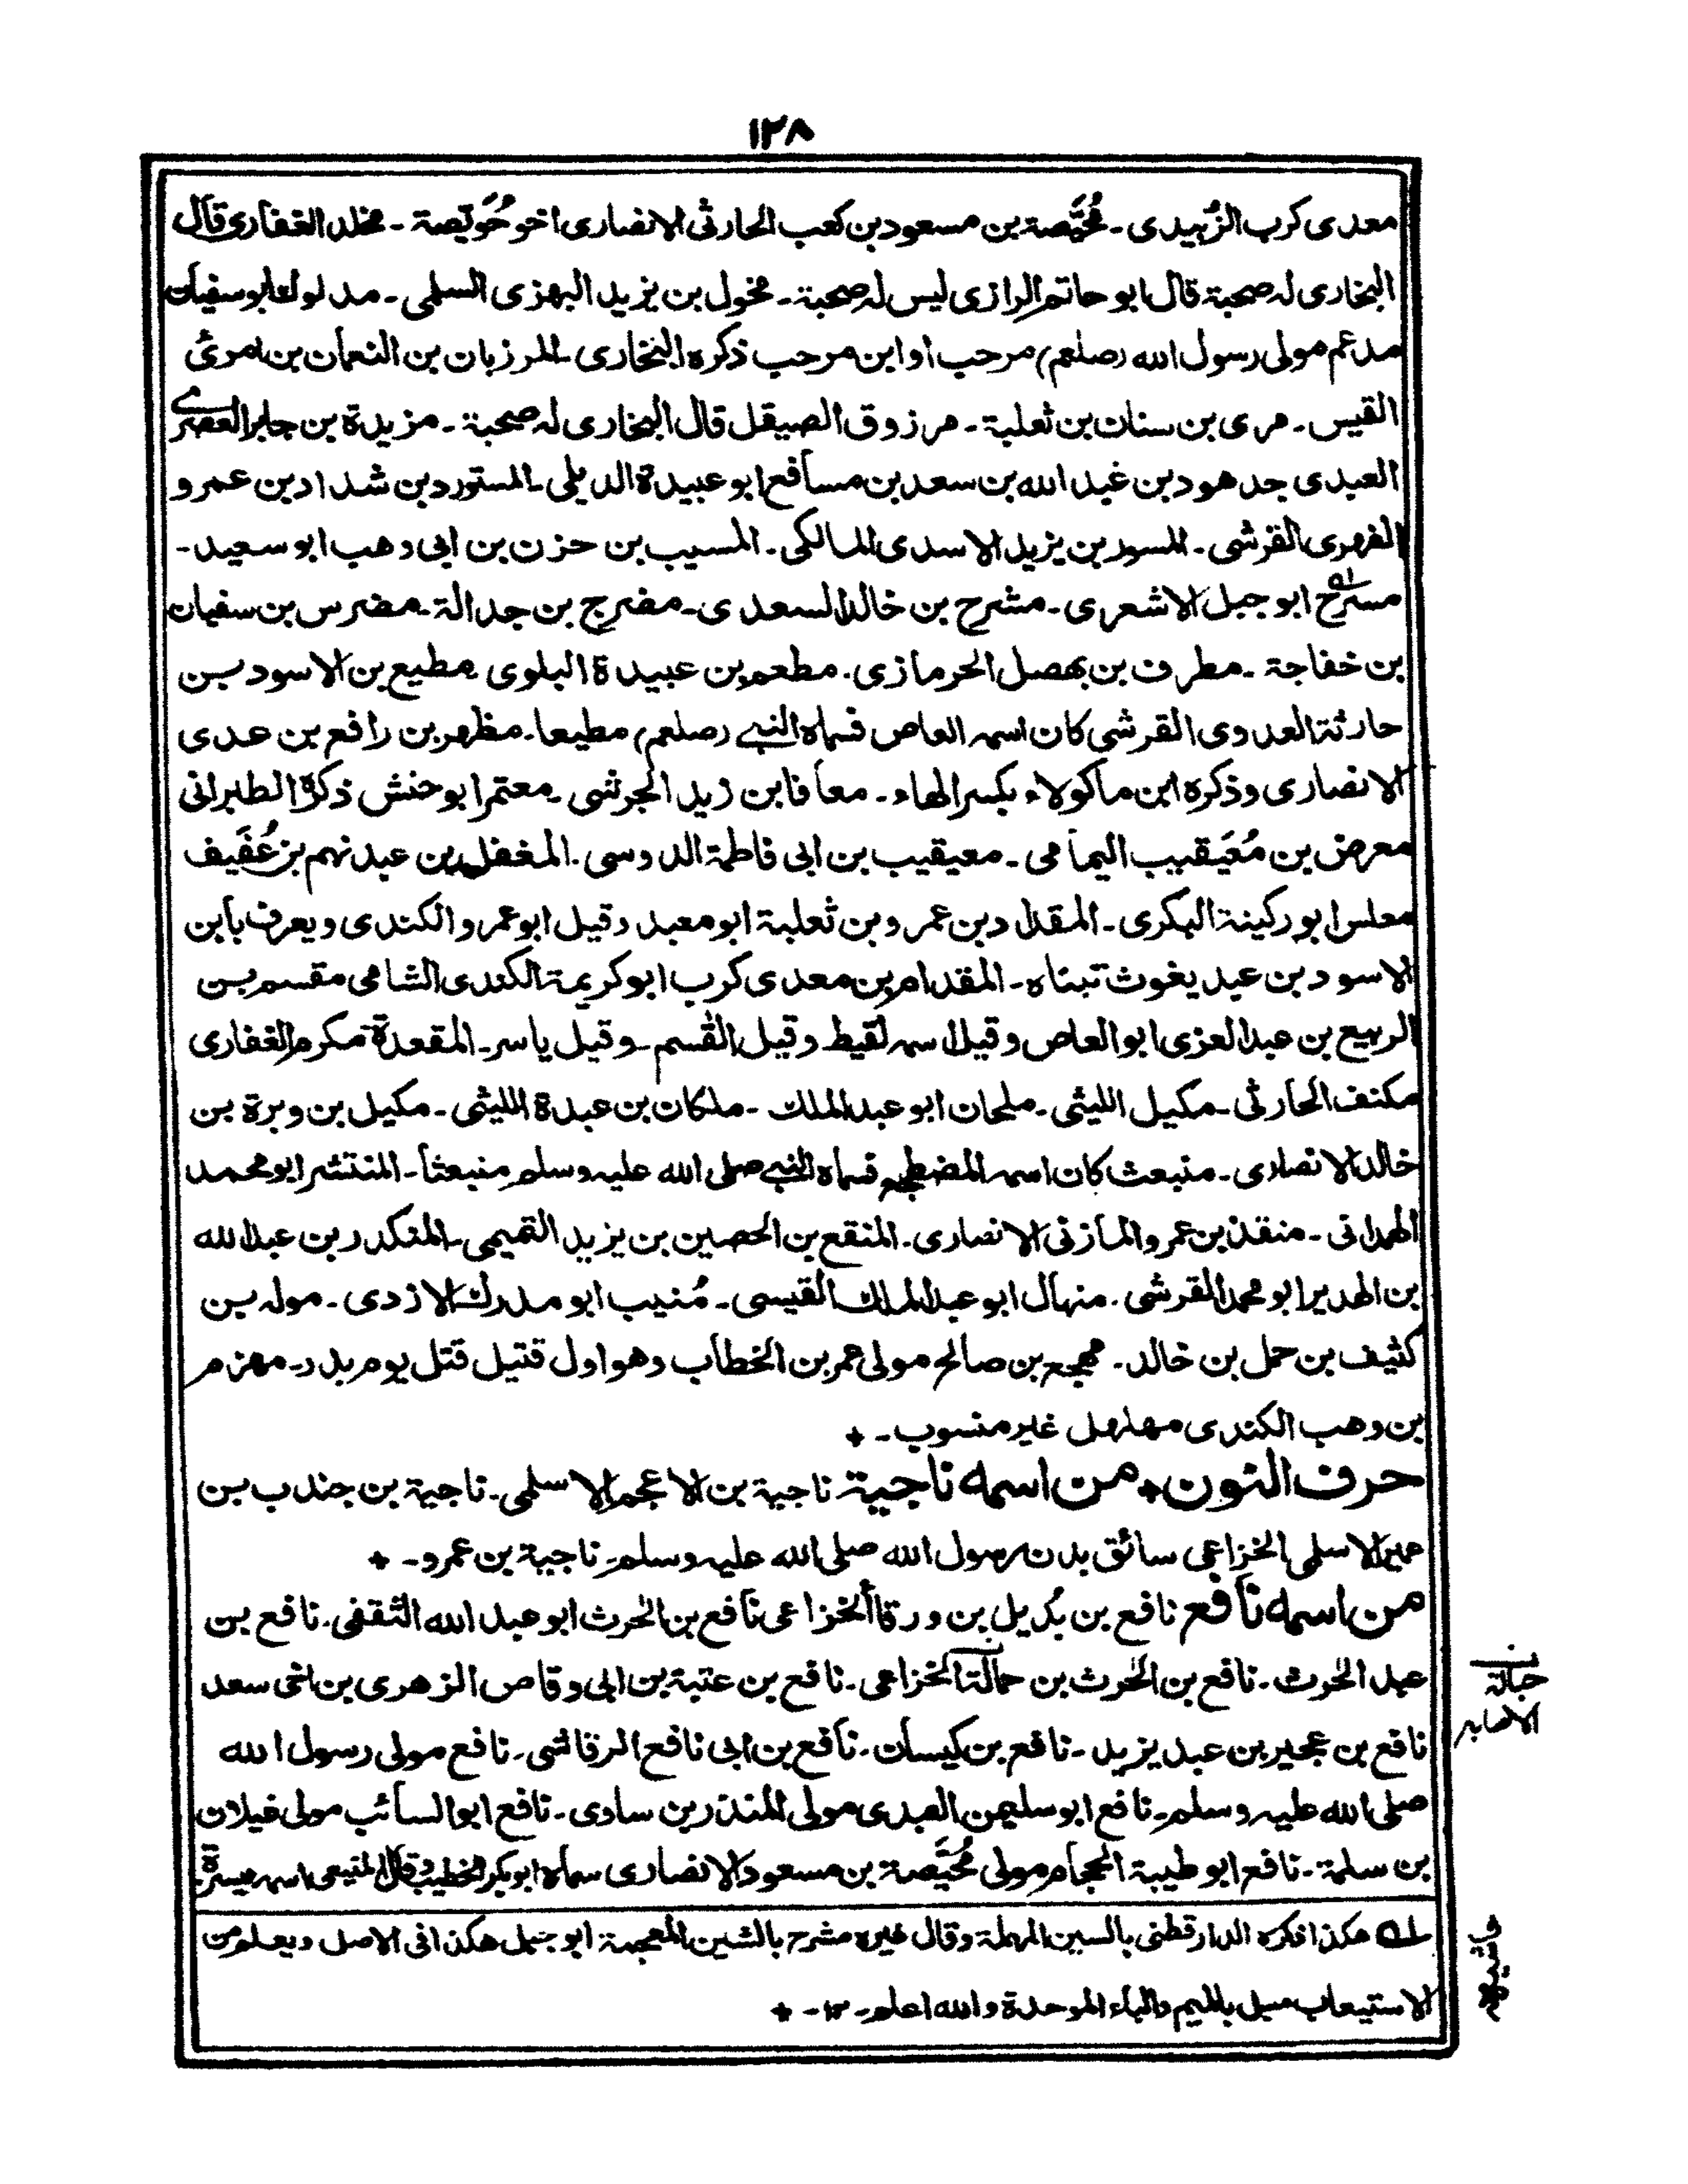 ١٢٨
معدی کرب الزُبیدی ـ مُحَیَّصة بن مسعود بن کعب الحارثی الانصاری اخو حُوَیّصة ـ مخلد الغفاری قال
البخاری له صحبة قال ابو حاتم الرازی لیس له صحبة ـ مخول بن یزید البهزی السلمی ـ مدلوك ابو سفیان
مدعم مولی رسول الله (صلعم) مرحب او ابن مرحب ذکره البخاری ـ المرزبان بن النعمان بن امرئ
القیس ـ مری بن سنان بن ثعلبة ـ مرزوق الصیقل قال البخاری له صحبة ـ مزیدة بن جابر العصری
العبدی جد هود بن عبد الله بن سعد بن مسافع ابو عبیدة الدیلی ـ المستورد بن شداد بن عمرو
الفهری القرشی ـ المسور بن یزید الاسدی المالکی ـ المسیب بن حزن بن ابی وهب ابو سعید ـ
مسرح ابو جبل الاشعری ـ مشرح بن خالد السعدی ـ مضرج بن جدالة ـ مضرس بن سفیان
بن خفاجة ـ مطرف بن بهصل الحرمازی ـ مطعم بن عبیدة البلوی ـ مطیع بن الاسود بن
حارثة العدوی القرشی کان اسمه العاص فسماه النبی (صلعم) مطیعا ـ مظهر بن رافع بن عدی
الانصاری وذکره ابن ماکولاء بکسر الهاء ـ معافا بن زید الجرشی ـ معتمر ابو حنش ذکره الطبرانی
معرض بن مُعَیقیب الیمامی ـ معیقیب بن ابی فاطمة الدوسی ـ المغفل بن عبد نهم بن عُفَیف
معلس ابو رکینة البکری ـ المقداد بن عمرو بن ثعلبة ابو معبد وقیل ابو عمرو الکندی ویعرف بابن
الاسود بن عبد یغوث تبناه ـ المقدام بن معدی کرب ابو کریمة الکندی الشامی مقسم بن
الربیع بن عبد العزی ابو العاص وقیل اسمه لقیط وقیل القسم ـ وقیل یاسر ـ المقعدة مکرم الغفاری
مکنف الحارثی ـ مکیل اللیثی ـ ملحان ابو عبد الملك ـ ملکان بن عبدة اللیثی ـ مکیل بن وبرة بن
خالد الانصاری ـ منبعث کان اسمه المضطجع فسماه النبی صلی الله علیه وسلم منبعثا ـ المنتشر ابو محمد
الهمدانی ـ منقذ بن عمرو المازنی الانصاری ـ المنقع بن الحصین بن یزید التمیمی ـ المنکدر بن عبد الله
بن الهدیر ابو محمد القرشی ـ منهال ابو عبد الملك القیسی ـ مُنیب ابو مدرك الازدی ـ موله بن
کثیف بن حمل بن خالد ـ مهجع بن صالح مولی عمر بن الخطاب وهو اول قتیل قتل یوم بدر ـ مهزم
بن وهب الکندی مهلهل غیر منسوب ـ ٭
حرف النون ٭ من اسمه ناجیة ناجیة بن الاعجم الاسلمی ـ ناجیة بن جندب بن
عمیر الاسلمی الخزاعی سائق بدن رسول الله صلی الله علیه وسلم ـ ناجیة بن عمرو ـ ٭
من اسمه نافع نافع بن بُدیل بن ورقا الخزاعی نافع بن الحرث ابو عبد الله الثقفی ـ نافع بن
عبد الحرث ـ نافع بن الحرث بن حمالة الخزاعی ـ نافع بن عتبة بن ابی وقاص الزهری بن اخی سعد
نافع بن عجیر بن عبد یزید ـ نافع بن کیسان ـ نافع بن ابی نافع الرقاشی ـ نافع مولی رسول الله
صلی الله علیه وسلم ـ نافع ابو سلیمن العبدی مولی المنذر بن ساوی ـ نافع ابو السائب مولی غیلان
بن سلمة ـ نافع ابو طیبة الحجام مولی مُحَیَّصة بن مسعود الانصاری سماه ابو بکر الخطیب وقال المنیعی اسمه میسرة
ن حبالة
الاصابه
له هکذا ذکره الدارقطنی بالسین المهملة وقال غیره مشرح بالشین المعجمة ابو جمل هکذا فی الاصل ویعلم من
الاستیعاب مبل بالمیم والباء الموحدة والله اعلم ـ ١٢ ـ ٭